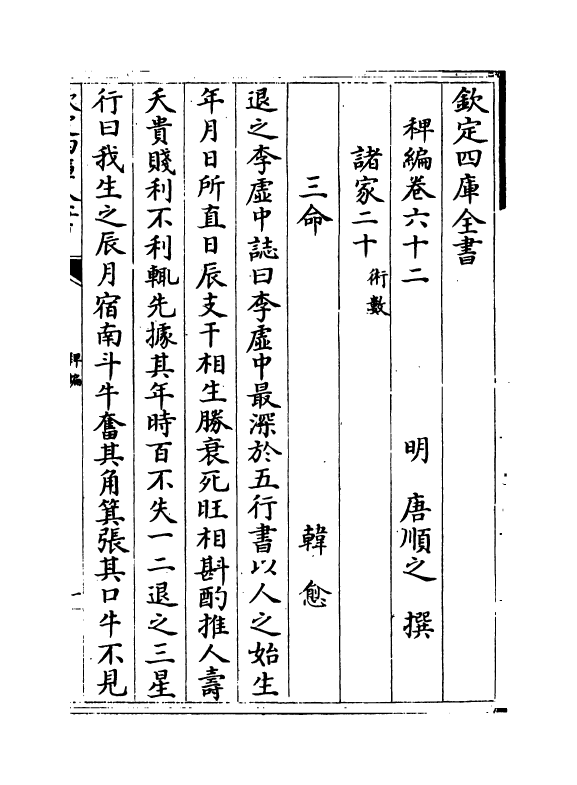 欽定四庫全書
稗編卷六十二　明　唐順之　撰
諸家二十 術數
三命　韓愈
退之李虛中誌曰李虛中最深於五行書以人之始生
年月日所直日辰支干相生勝衰死旺相斟酌推人壽
夭貴賤利不利輒先據其年時百不失一二退之三星
行曰我生之辰月宿南斗牛奮其角箕張其口牛不見
稗編
一